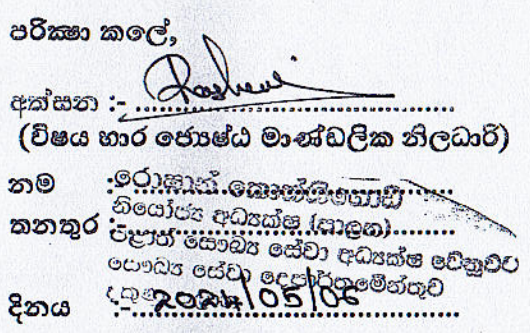 පරික්ෂා කලේ,
අත්සන :-
(විෂය භාර ජ්‍යෙෂ්ඨ මාණ්ඩලික නිලධාරි)
නම :- රොෂාන්
නියෝජ්‍ය අධ්‍යක්ෂ (පාලන)
තනතුර :-
පළාත් සෞඛ්‍ය සේවා අධ්‍යක්ෂ වෙනුවට
සෞඛ්‍ය සේවා දෙපාර්තමේන්තුව
දිනය :- 2024/05/06